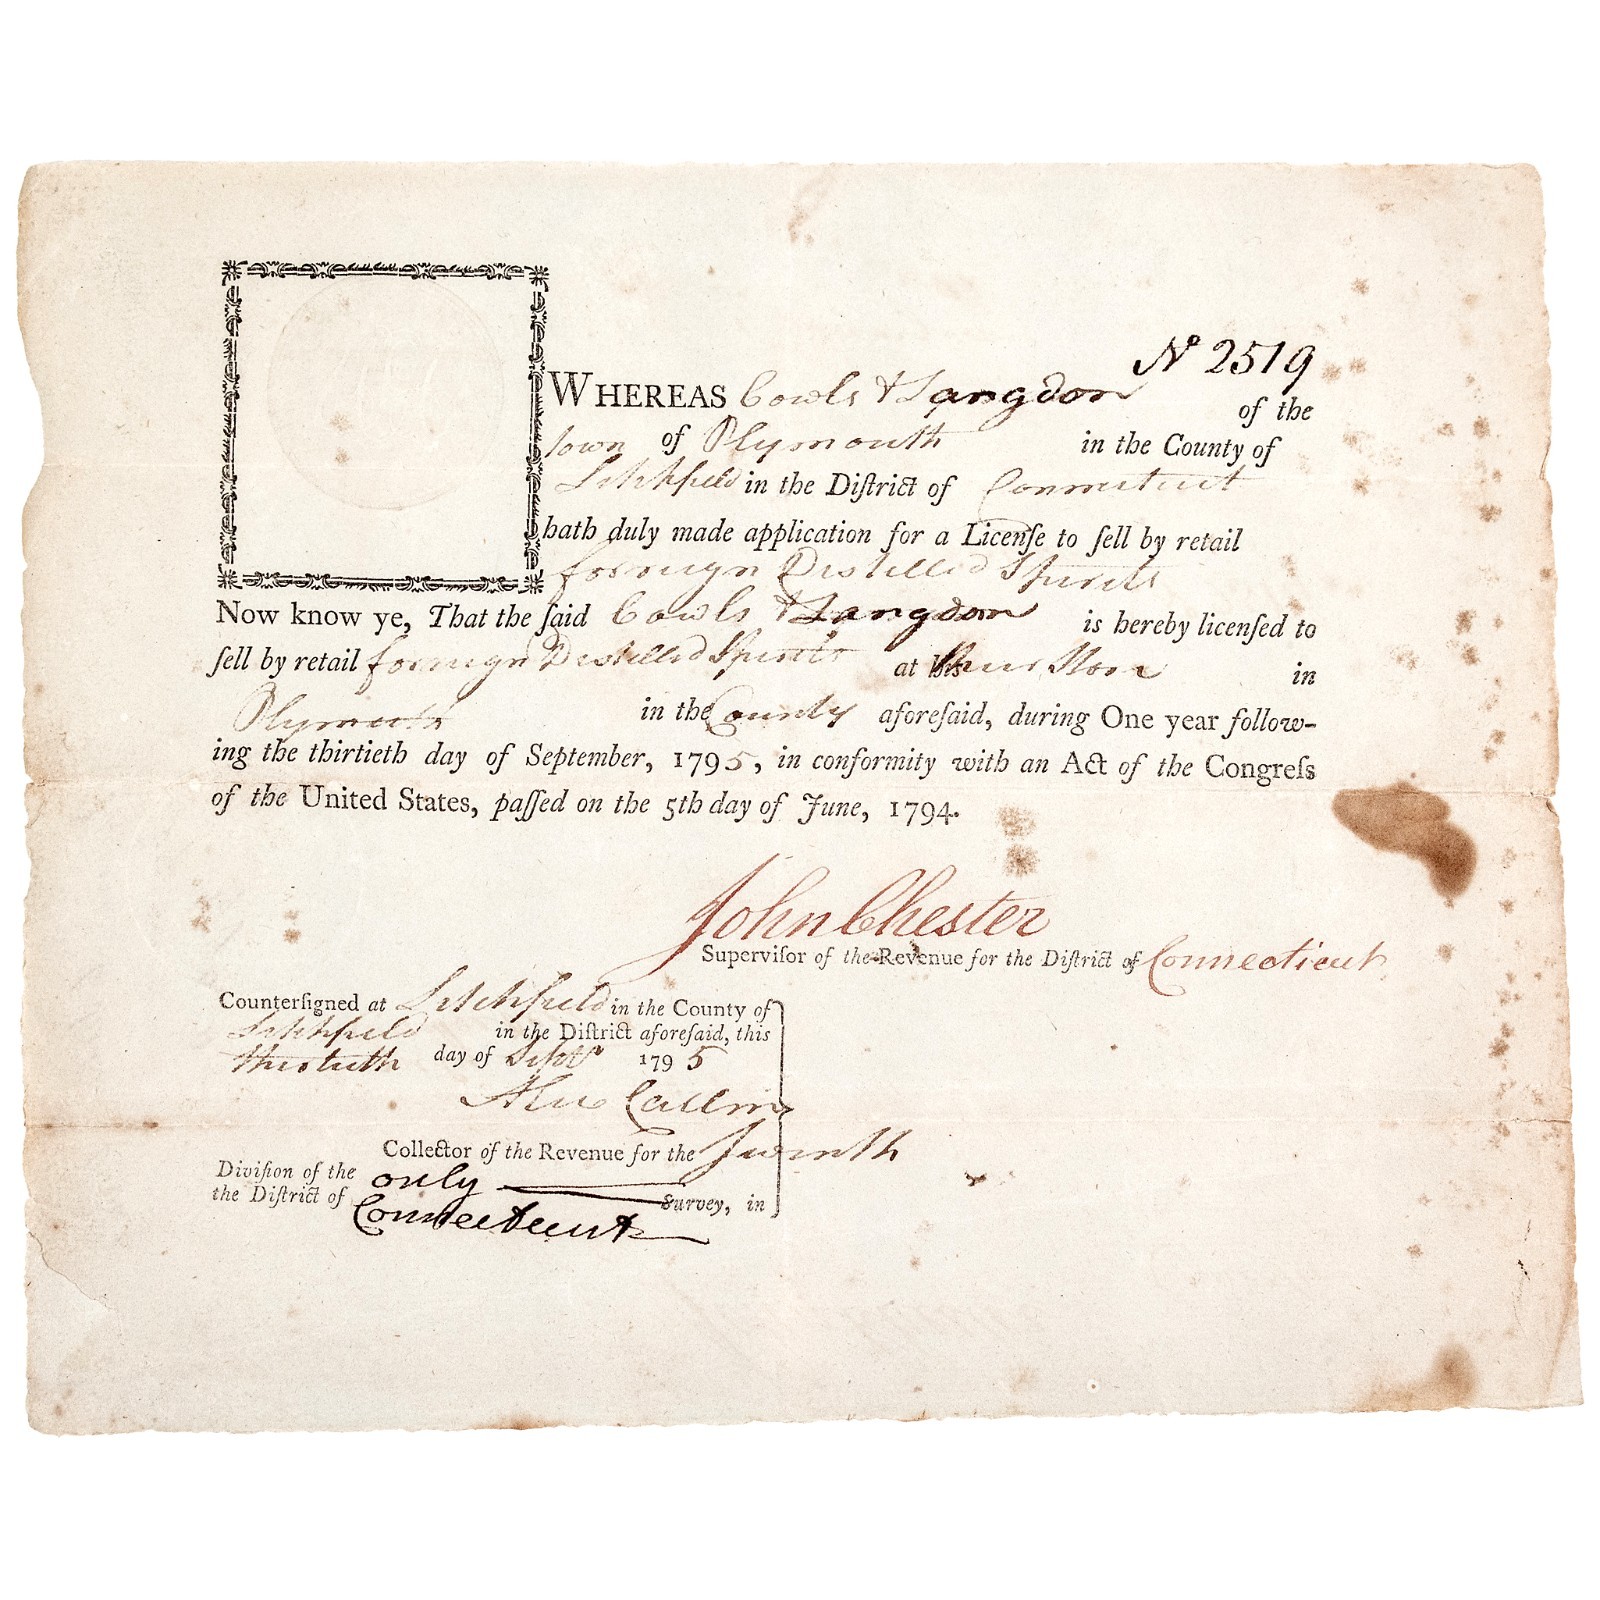 No 2519
WHEREAS Cowls & Langdon of the
Town of Plymouth in the County of
Litchfield in the Diſtrict of Connecticut
hath duly made application for a Licenſe to ſell by retail
forreign Distilled Spirits
Now know ye, That the ſaid Cowls & Langdon is hereby licenſed to
ſell by retail forreign Distilled Spirits at their Store in
Plymouth in the County aforeſaid, during One year follow-
ing the thirtieth day of September, 1795, in conformity with an Act of the Congreſs
of the United States, paſſed on the 5th day of June, 1794.
John Chester
Superviſor of the Revenue for the Diſtrict of Connecticut
Counterſigned at Litchfield in the County of
Litchfield in the Diſtrict aforeſaid, this
thirtieth day of Sept 1795
Collector of the Revenue for the
Diviſion of the only Survey, in
the Diſtrict of Connecticut